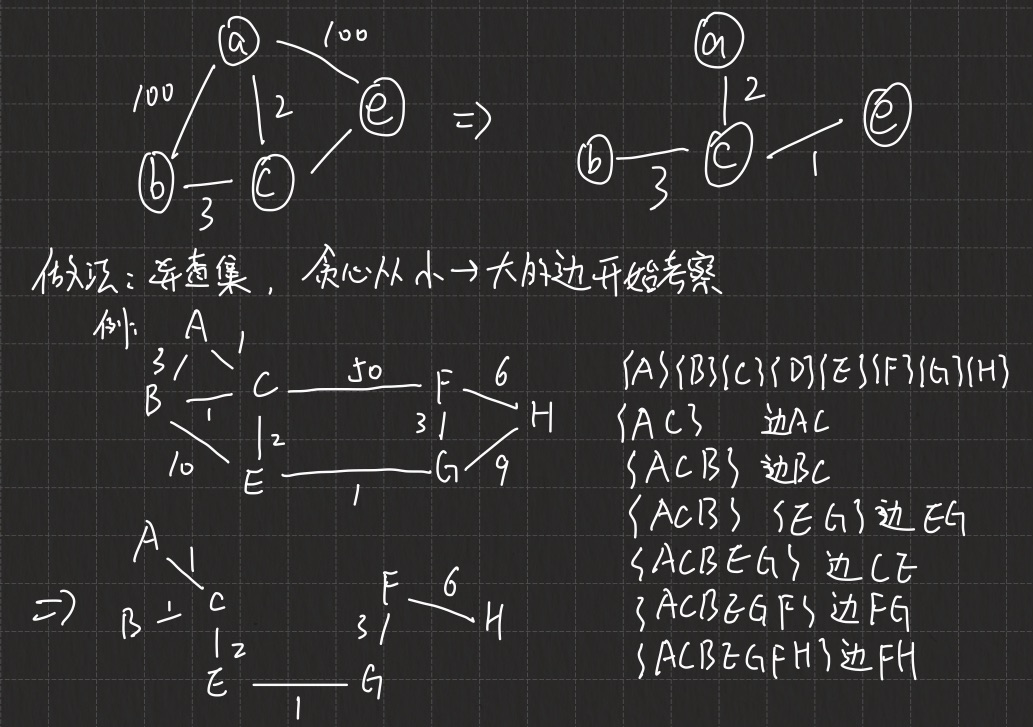 a 100
100 2 e
b 3 c
=>
a
2
b 3 c 1 e
做法：并查集，贪心从小→大的边开始考察
例：
A
3 1
B 1 C 50 F 6 H
10 2 3 9
E 1 G
{A}{B}{C}{D}{E}{F}{G}{H}
{AC} 边AC
{ACB} 边BC
{ACB} {EG}边EG
{ACBEG} 边CE
{ACBEGF}边FG
{ACBEGFH}边FH
=>
A 1
B 1 C F 6 H
2 3
E 1 G